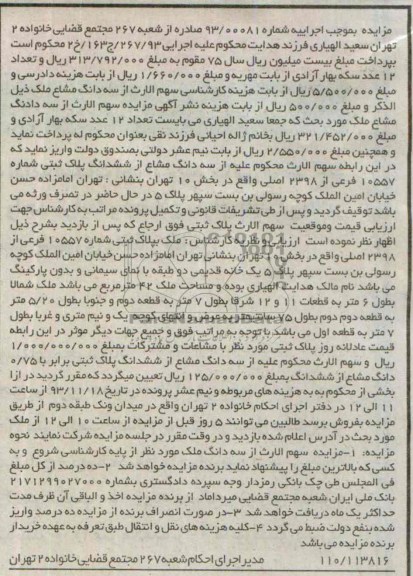 مزایده بموجب اجراییه شماره ۹۳/۰۰۰۸۱ صادره از شعبه ۲۶۷ مجتمع قضایی خانواده ۲
تهران سعید الهیاری فرزند هدایت محکوم علیه اجرایی ۲۶۷/۹۳/ج/۱۶۳خ۲ محکوم است
بپرداخت مبلغ بیست میلیون ریال سال ۷۵ مقوم به مبلغ ۳۱۳/۷۹۲/۰۰۰ ریال و تعداد
۱۲ عدد سکه بهار آزادی از بابت مهریه و مبلغ ۱/۶۶۰/۰۰۰ ریال از بابت هزینه دادرسی و
مبلغ ۵/۵۰۰/۰۰۰ ریال از بابت هزینه کارشناسی سهم الارث از سه دانگ مشاع ملک ذیل
الذکر و مبلغ ۵۰۰/۰۰۰ ریال از بابت هزینه نشر آگهی مزایده سهم الارث از سه دادنگ
مشاع ملک مورد بحث که جمعا سعید الهیاری می بایست تعداد ۱۲ عدد سکه بهار آزادی و
مبلغ ۳۲۱/۴۵۲/۰۰۰ ریال بخانم ژاله احیانی فرزند نقی بعنوان محکوم له پرداخت نماید
و همچنین مبلغ ۲/۵۵۰/۰۰۰ ریال از بابت نیم عشر دولتی بصندوق دولت واریز نماید که
در این رابطه سهم الارث محکوم علیه از سه دانگ مشاع از ششدانگ پلاک ثبتی شماره
۱۰۵۵۷ فرعی از ۲۳۹۸ اصلی واقع در بخش ۱۰ تهران بنشانی : تهران امامزاده حسن
خیابان امین الملک کوچه رسولی بن بست سپهر پلاک ۵ در حال حاضر در تصرف ورثه می
باشد توقیف گردید و پس از طی تشریفات قانونی و تکمیل پرونده مراتب به کارشناس جهت
ارزیابی قیمت وموقعیت سهم الارث پلاک ثبتی فوق ارجاع که پس از بازدید بشرح ذیل
اظهار نظر نموده است ارزیابی و نظریه کارشناس : ملک بپلاک ثبتی شماره ۱۰۵۵۷ فرعی از
۲۳۹۸ اصلی واقع در بخش ۱۰ تهران بنشانی تهران امامزاده حسن خیابان امین الملک کوچه
رسولی بن بست سپهر پلاک ۵ یک خانه قدیمی دو طبقه با نمای سیمانی و بدون پارکینگ
می باشد نام مالک هدایت الهیاری بوده و مساحت ملک ۴۲ مترمربع می باشد ملک شمالا
بطول ۶ متر به قطعات ۱۱ و ۱۲ شرقا بطول ۷ متر به قطعه دوم و جنوبا بطول ۵/۲۰ متر
به قطعه دوم دوم بطول ۷۵ سانتیمتر به عرض و انتهای کوچه یک و نیم متری و غربا بطول
۷ متر به قطعه اول می باشد. با توجه به مراتب فوق و جمیع جهات دیگر موثر در این رابطه
قیمت عادلانه روز پلاک ثبتی مورد نظر با مشاعات و مشترکات بمبلغ ۱/۰۰۰/۰۰۰/۰۰۰
ریال و سهم الارث محکوم علیه از سه دانگ مشاع از ششدانگ پلاک ثبتی برابر با ۰/۷۵
دانگ مشاع از ششدانگ بمبلغ ۱۲۵/۰۰۰/۰۰۰ ریال تعیین میگردد که مقرر گردید در ازا
بخشی از محکوم به به هزینه های مربوطه و نیم عشر پرونده در تاریخ ۹۳/۱۱/۱۸ از ساعت
۱۱ الی ۱۲ در دفتر اجرای احکام خانواده ۲ تهران واقع در میدان ونک طبقه دوم از طریق
مزایده بفروش برسد طالبین می توانند ۵ روز قبل از مزایده از ساعت ۱۰ الی ۱۲ از ملک
مورد بحث در آدرس اعلام شده بازدید و در وقت مقرر در جلسه مزایده شرکت نمایند نحوه
مزایده: ۱-مزایده سهم الارث از سه دانگ ملک مورد نظر از پایه کارشناسی شروع و به
کسی که بالاترین مبلغ را پیشنهاد نماید برنده مزایده خواهد شد ۲-ده درصد از کل مبلغ
فی المجلس طی چک بانکی رمزدار وجه سپرده دادگستری بشماره ۲۱۷۱۲۹۹۰۲۷۰۰۰
بانک ملی ایران شعبه مجتمع قضایی میرداماد از برنده مزایده اخذ و الباقی آن ظرف مدت
حداکثر یک ماه دریافت خواهد شد ۳-در صورت انصراف برنده از مزایده ده درصد واریز
شده بنفع دولت ضبط می گردد ۴-کلیه هزینه های نقل و انتقال طبق تعرفه به عهده خریدار
برنده مزایده می باشد
۱۱۰/۱۱۳۸۱۶ مدیر اجرای احکام شعبه ۲۶۷ مجتمع قضایی خانواده ۲ تهران